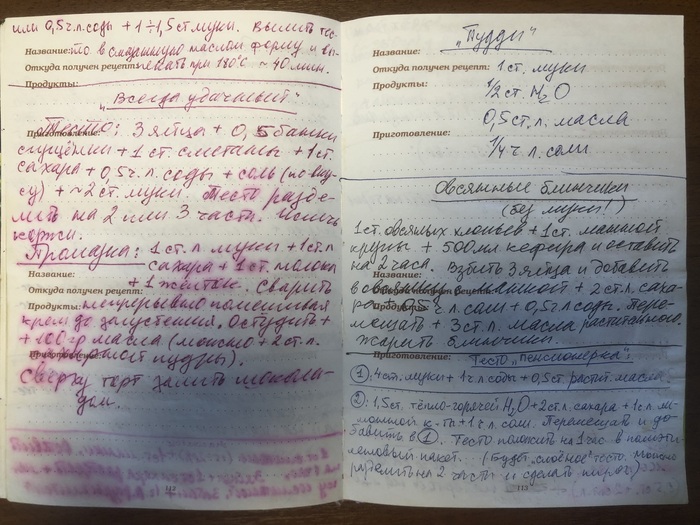 или 0,5 ч.л. соды + 1÷1,5 ст муки. Вылить тес-
Название: то в смазанную маслом форму и вы-
Откуда получен рецепт: пекать при 180°С ~ 40 мин.
Продукты:
„Всегда удачный"
Приготовление: Тесто: 3 яйца + 0,5 банки
сгущёнки + 1 ст. сметаны + 1 ст.
сахара + 0,5 ч.л. соды + соль (по вку-
су) + ~2 ст. муки. Тесто разде-
лить на 2 или 3 части. Испечь
коржи.
Промазка: 1 ст. л муки + 1 ст.л
сахара + 1 ст. молока
Название: + 1 желток. Сварить
Откуда получен рецепт:
Продукты: непрерывно помешивая
крем до загустения. Остудить +
+ 100 гр масла (можно + 2 ст. л.
Приготовление: пудры).
Сверху торт залить шокола-
дом.
112
„Пудди"
Название:
Откуда получен рецепт: 1 ст. муки
Продукты: 1/2 ст. H2O
0,5 ст. л. масла
Приготовление: 1/4 ч. л. соли
Овсянные блинчики
(без муки!)
1 ст. овсяных хлопьев + 1 ст. манной
крупы + 500 мл кефира и оставить
Название: на 2 часа. Взбить 3 яйца и добавить
Откуда получен рецепт: в овсянку с манкой + 2 ст.л. саха-
Продукты: ра + 0,5 ч. л соли + 0,5 ч. л соды. Пере-
мешать + 3 ст.л. масла растит.
жарить блинчики.
Приготовление: Тесто „пенсионерка":
①: 4 ст. муки + 1 ч. л соды + 0,5 ст. растит. масла.
②: 1,5 ст. тёпло-горячей H2O + 2 ст л. сахара + 1 ч. л ли-
монной к-ты + 1 ч л. соли. Перемешать и до-
бавить в ①. Тесто положить на 1 час в полиэти-
леновый пакет. (Будет „слоёное" тесто. Можно
разделить на 2 части и сделать пирог)
113